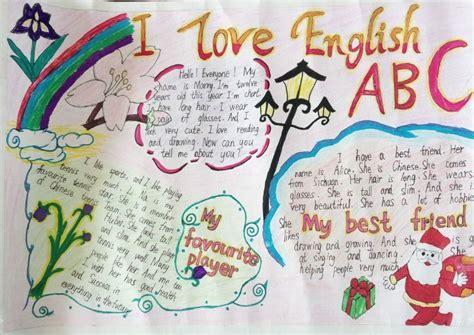 I Love English
ABC
Hello! Everyone! My
name is Morry. I'm twelve
years old this year. I'm short.
I have long hair. I wear
a pair of glasses. And I
look very cute. I love reading
and drawing. Now can you
tell me about you!
I like sports, and I like playing
tennis very much. Li Na is my
favourite tennis star. She is a member
of Chinese tennis
team. She comes from
Wuhan. She has
and She
tennis very well. Many
people like her. And me too
wish her has good health
and Success in
everything in the future.
My
favourite
player
I have a best friend. Her
name is Alice. She is Chinese. She comes
from Sichuan. Her hair is long. She wears
glasses. She is tall and slim. And she is
very beautiful. She has a lot of hobbies.
She likes
drawing and growing. And She
is at singing and dancing. She is
helping people very much.
My best friend